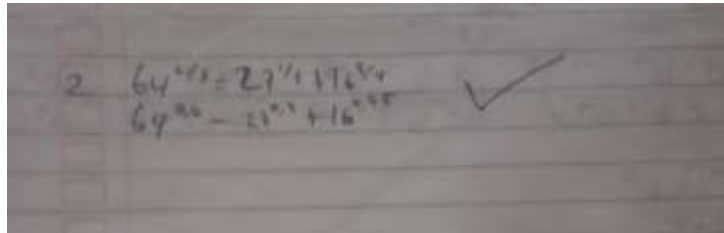 2 64^2/3 - 27^1/3 + 16^3/4
64^0,6 - 27^0,3 + 16^0,75